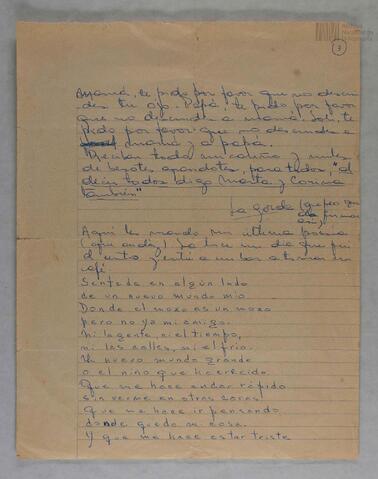 3
Mamá, te pido por favor que no descui
des tu ojo. Papá, te pido por favor
que no descuides a mamá. Soli, te
pido por favor que no descuides a
mamá y a papá.
Reciban todo mi cariño y miles
de besotes grandotes, para todos, "al
decir todos digo Marta y Corina
también"
La gorda (que peo que
Aquí les mando mi última poesía
La hice un día que fui
café
Sentada en algún lado
de un nuevo mundo mío
Donde el mozo es un mozo
pero no ya mi amigo.
Ni la gente, ni el tiempo,
ni las calles, ni el frío.
Un nuevo mundo grande
o el niño que ha crecido.
Que me hace andar rápido
sin verme en otras caras
Que me hace ir pensando
donde queda mi casa.
Y que me hace estar triste